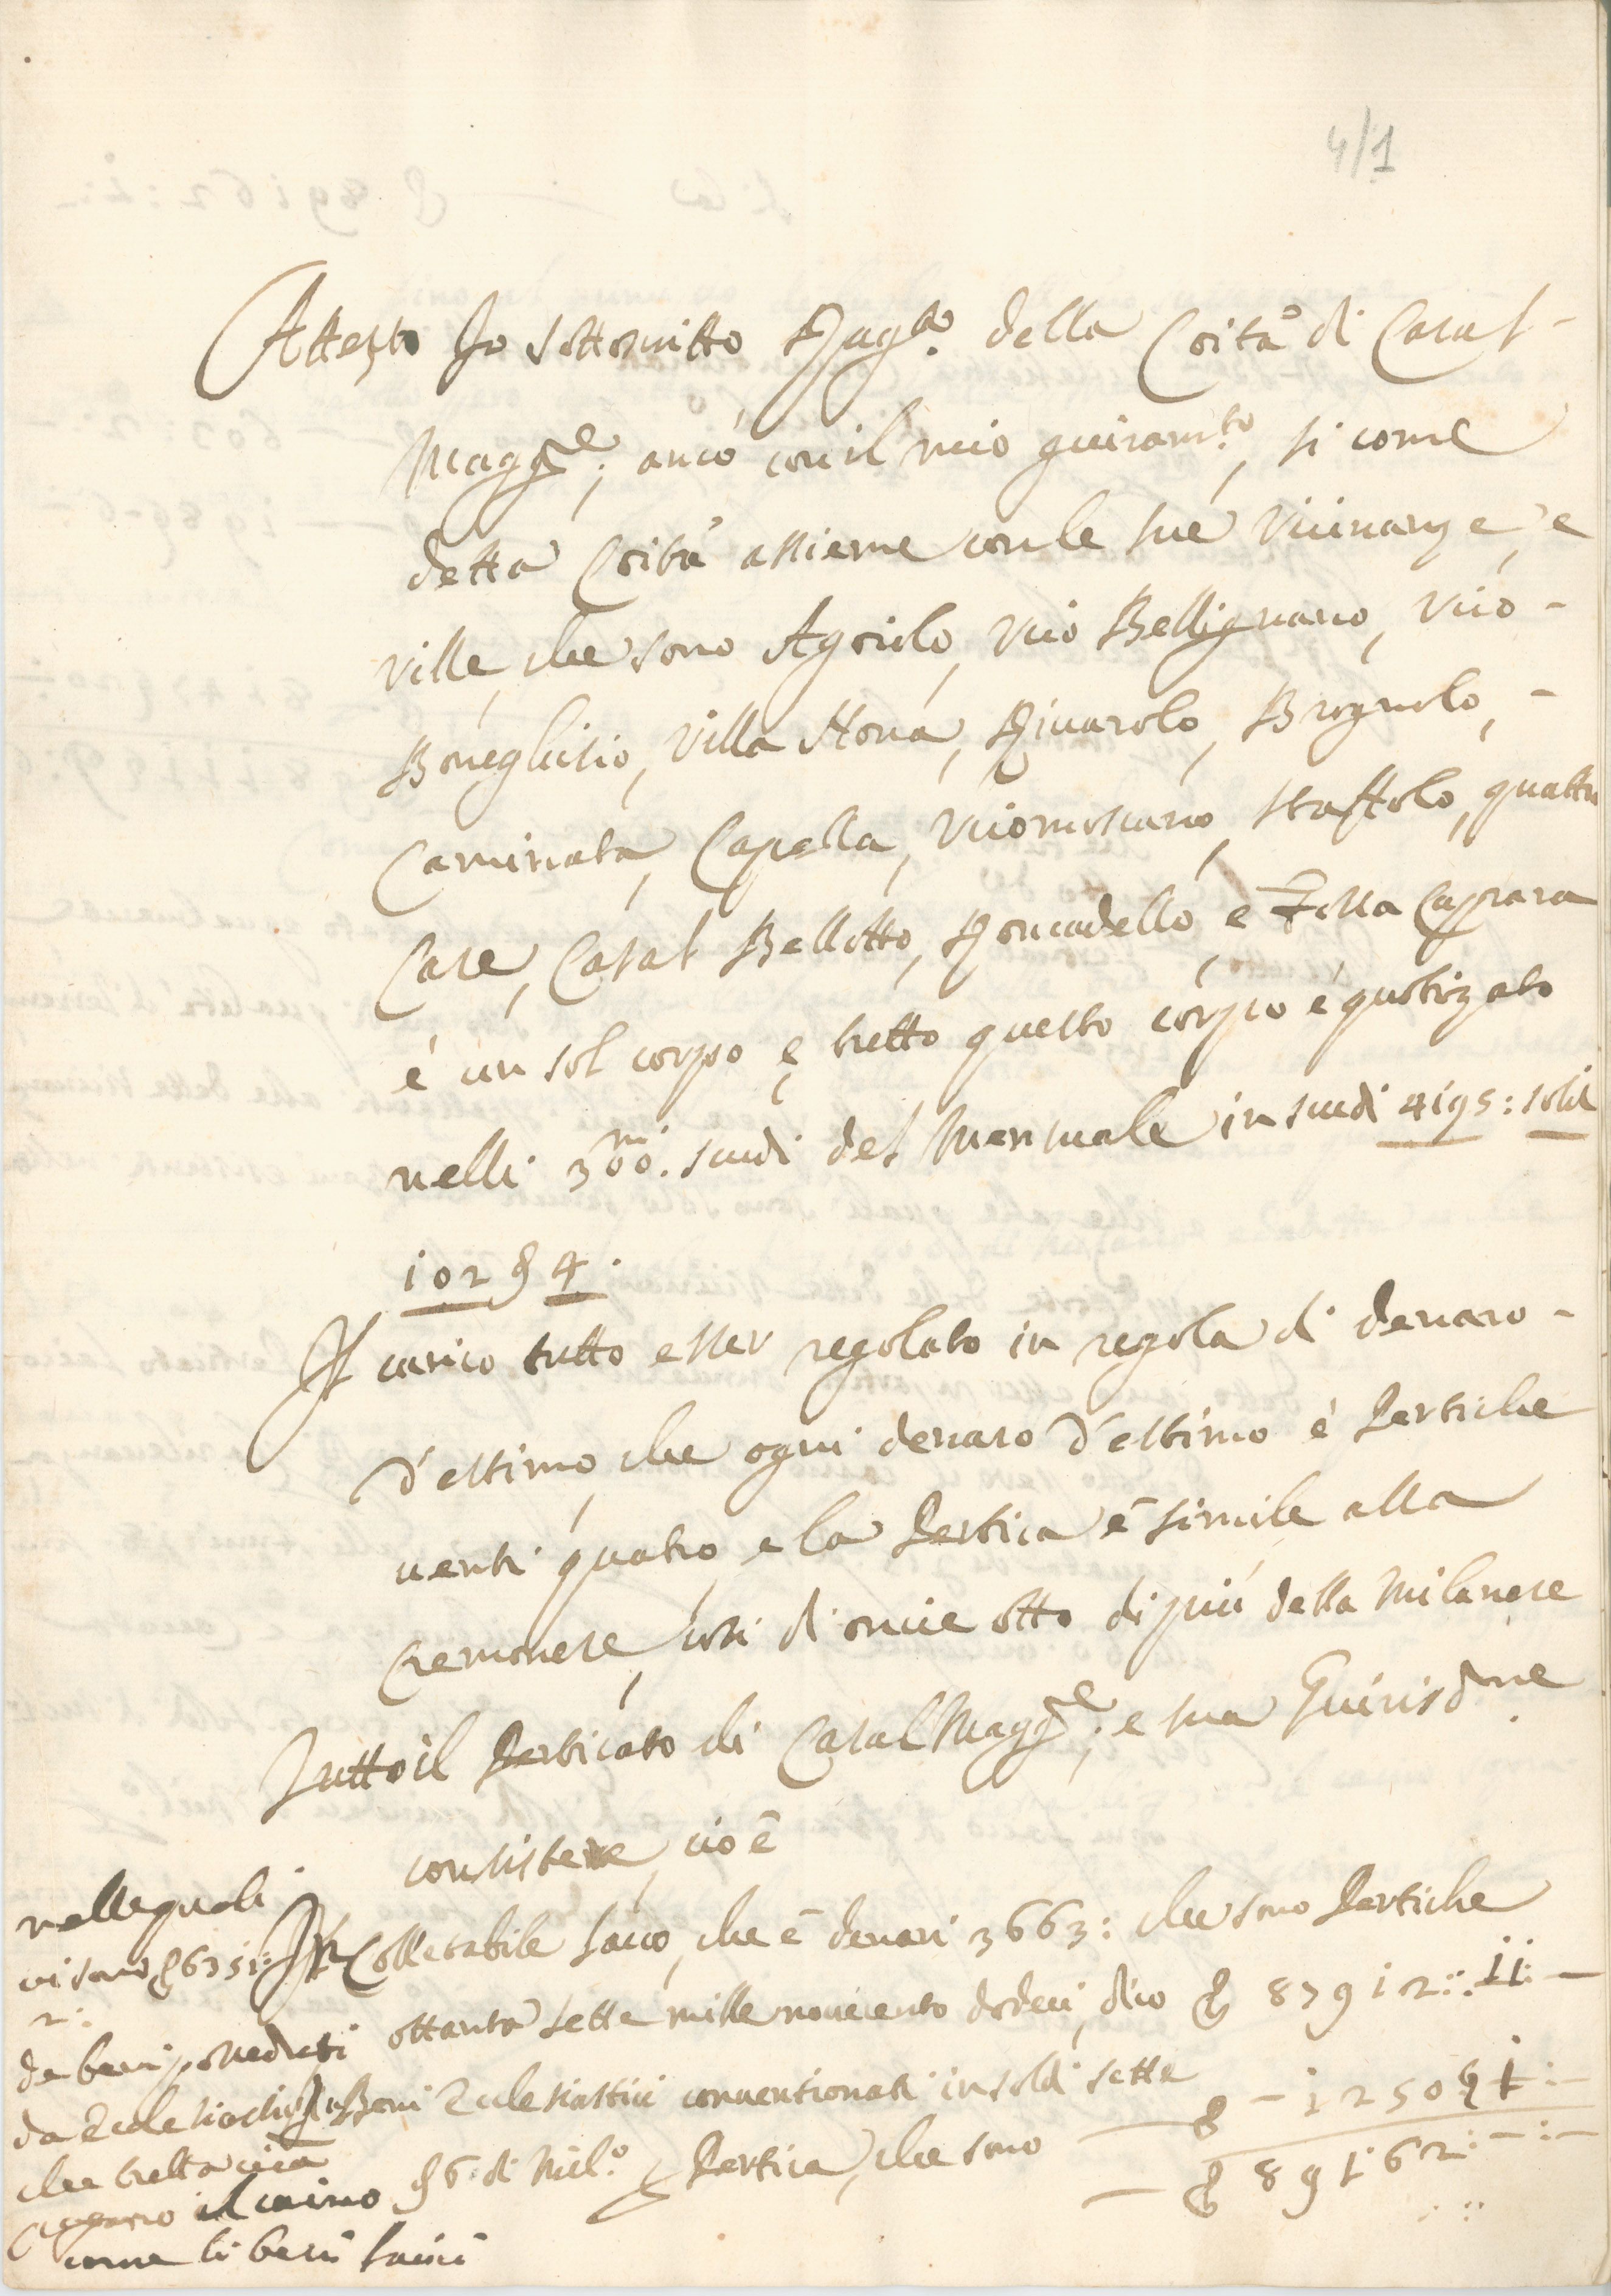 4/1
Attesto Io sottoscritto Rag.to della Città di Casal-
Magg.re; anco con il mio giuram.to, si come
detta Città assieme con le sue Vicinanze, e
Ville, che sono Agoiolo, Vico Bellignano, Vico-
Boneghisio, Villa Nova, Rivarolo, Brugnolo,-
Caminata, Capella, Vicomoscano, Staffolo, quattro
Case, Casal Bellotto, Roncadello, e Fossa Caprara
è un sol corpo e tutto questo corpo è quotizato
nelli 300.m scudi del Mensuale in scudi 4195: soldi
102 4.
Il carico tutto esser regolato in regola di denaro-
d'estimo, che ogni denaro d'estimo è Pertiche
venti quatro, e la Pertica è simile alla
Cremonese, cosi di oncie otto di più della Milanese
Tutto il Perticato di Casal Magg.re; e sua Giurisd.ne
consistere, cioè
In Colletabile Laico, che è denari 3663: che sono Pertiche
ottanta sette mille novecento dodeci, dico 87912: 11:-
In Beni Ecclesiastici conventionati in soldi sette
6 di Mil.o Pertica, che sono - 1250
89162:-:-
nelle quali
vi sono 6351:
2:
de beni posseduti
da Ecclesiastici
che tutta via
il carico
come li beni laici